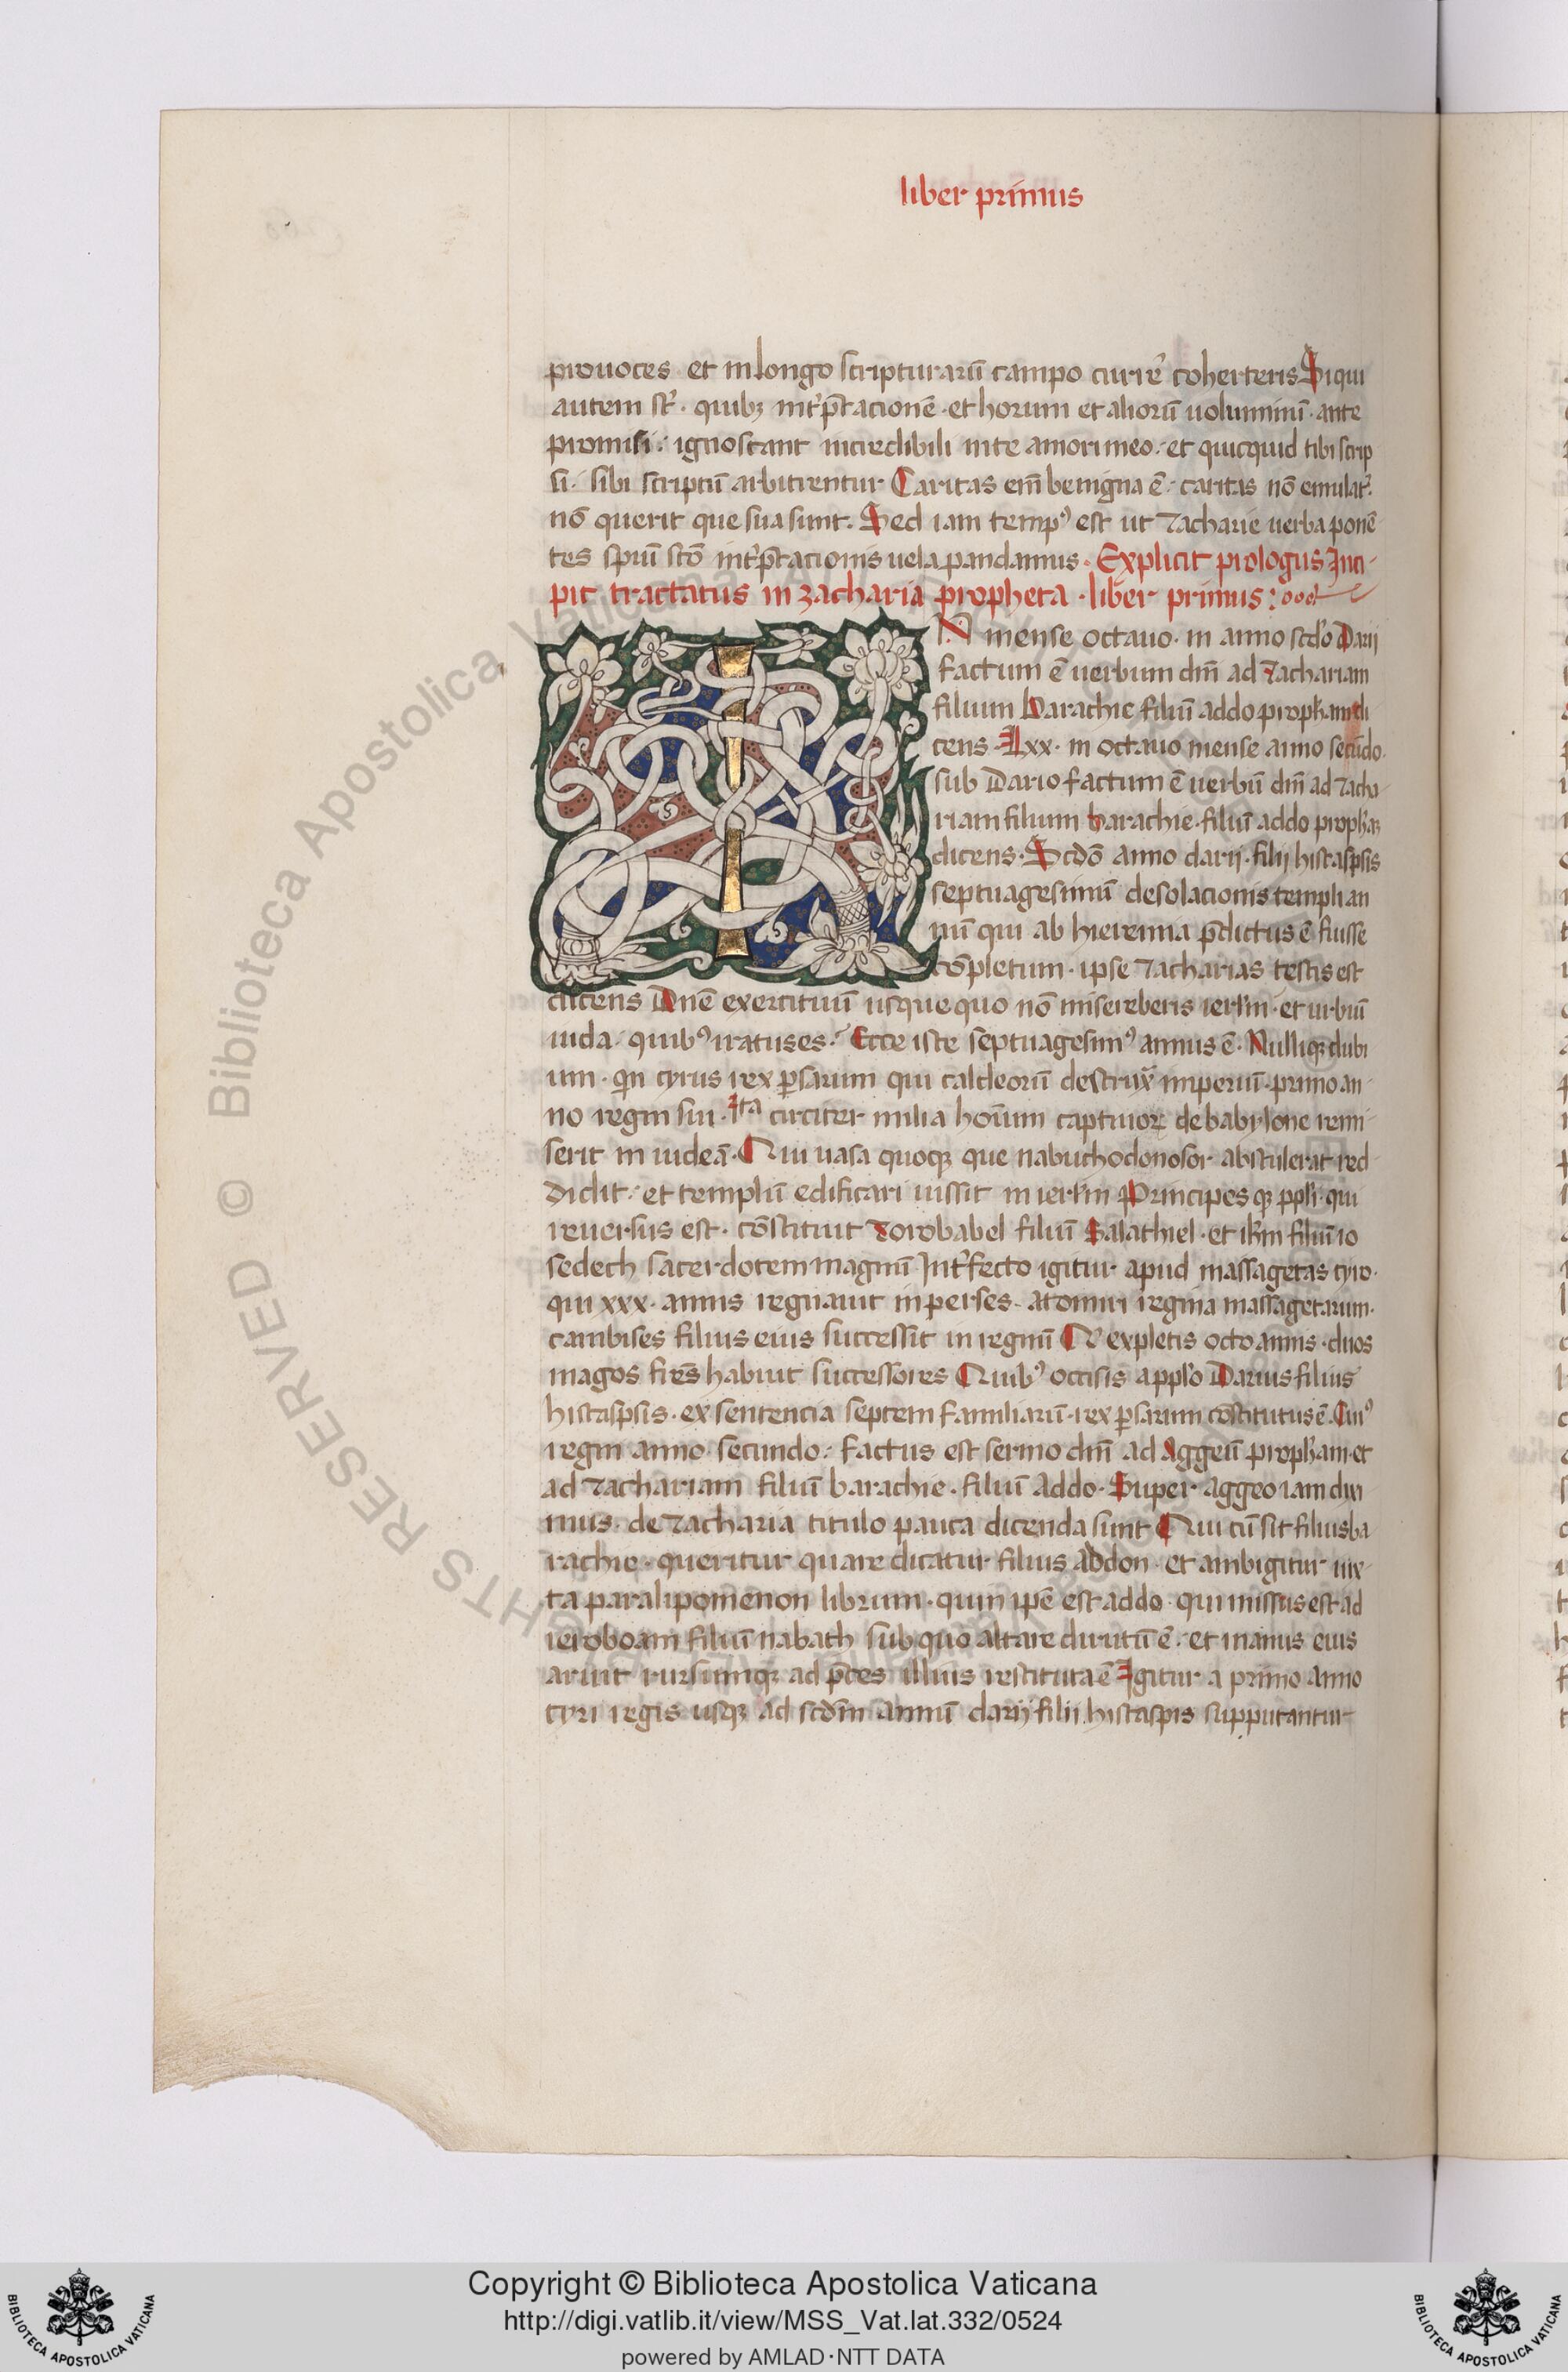 liber primus
prouoces et in longo scripturarū campo currē coherteris Si qui
autem st᷑. quibꝫ int᷑p̄tacionē · et horum et aliorū uoluminū · ante
promisi: ignoscant incredibili in te amori meo · et quicquid tibi scrip
si · sibi scriptū arbitrentur Caritas em̄ benigna ē · caritas nō emulat᷑.
nō querit que sua sunt. Sed iam tempꝰ est ut Zacharie uerba ponē
tes spū scō int᷑p̄tacionis uela pandamus · Explicit prologus Inci-
pit tractatus in zacharia propheta · liber primus:
N mense octauo · in anno scd̄o Darii
factum ē uerbum dn̄i ad Zachariam
filium Barachie filiū addo proph̄am di
cens · Lxx · in octauo mense anno secūdo
sub Dario factum ē uerbū dn̄i ad Zacha-
riam filium barachie · filiū addo proph̄aꝫ
dicens · Scdō anno darij · filij histaspsis
septuagesimū desolacionis templi an
nū qui ab hieremia p̄dictus ē fuisse
cōpletum · ipse Zacharias testis est
dicens Dn̄e exercituū usque quo nō misereberis ierl̄m · et urbiū
iuda · quibꝰ iratus es · Ecce iste septuagesimꝰ annus ē · Nulliqꝫ dubi
um · qin cyrus rex ꝑsarum qui caldeorū destrux᷑ imperiū · primo an-
no regni sui · circiter milia hoīum captiuoꝝ de babylone remi-
serit in iudeā · Qui uasa quoqꝫ que nabuchodonosor abstulerat red
didit · et templū edificari iussit in ierl̄m Principesqꝫ ppl̄i · qui
reuersus est · cōstituit Zorobabel filiū Salathiel · et ih̄m filiū io
sedech sacerdotem magnū Int᷑fecto igitur apud massagetas cyro ·
qui xxx · annis regnauit in perses · a tomiri regina massagetarum ·
cambises filius eius successit in regnū Q expletis octo annis · duos
magos fr̄es habuit successores Quibꝰ occisis a ppl̄o Darius filius
histaspsis · ex sentencia septem familiarū · rex ꝑsarum cōstitutus ē · Cuiꝰ
regni anno secundo: factus est sermo dn̄i ad Aggeū proph̄am · et
ad Zachariam filiū barachie · filiū Addo · Super aggeo iam dixi
mus · de Zacharia titulo pauca dicenda sunt Qui cū sit filius ba
rachie · queritur quare dicatur filius addon · et ambigitur iux-
ta paralipomenon librum · quin ip̄e est addo · qui missus est ad
ieroboam filiū nabath sub quo altare dirutū ē · et manus eius
aruit rursumqꝫ ad p̄ces illius restituta ē Igitur a primo anno
cyri regis usqꝫ ad scdm̄ annū darij filii histaspis supputantur
© Biblioteca Apostolica Vaticana
ALL RIGHTS RESERVED
Copyright © Biblioteca Apostolica Vaticana
http://digi.vatlib.it/view/MSS_Vat.lat.332/0524
powered by AMLAD·NTT DATA
BIBLIOTECA APOSTOLICA VATICANA
BIBLIOTECA APOSTOLICA VATICANA